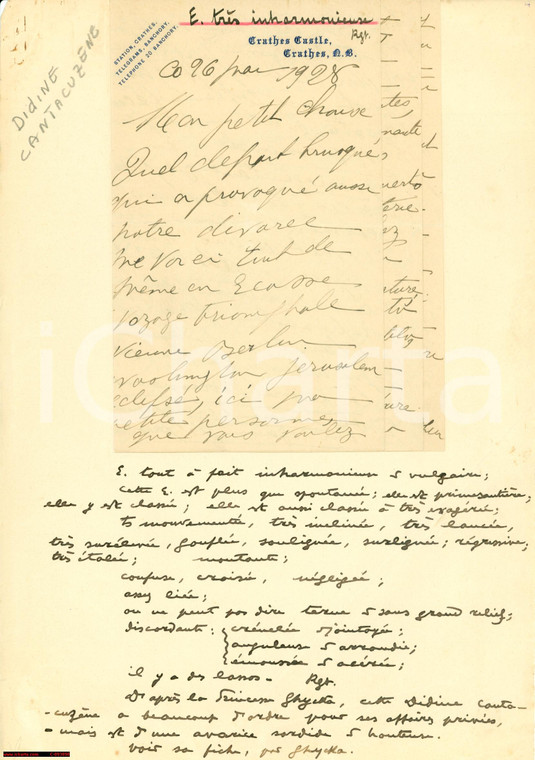 E. très inharmonieuse
Rgt.
STATION, CRATHES,
TELEGRAMS, BANCHORY.
TELEPHONE 70 BANCHORY.
Crathes Castle,
Crathes, N.B.
DIDINE
CANTACUZENE
co 26 mai 1928
Mon petit chouse
Quel depart brusqué
qui a provoqué aussi
notre divorce
Me voici tout de
même en Ecosse
voyage triomphale
Vienne Berlin
Washington Jerusalem
eclipsé, ici
petite personne
que vous voulez
iCharta
E. tout à fait inharmonieuse & vulgaire;
Cette E. est plus que spontanée; elle est primesautière;
elle y est classée; elle est aussi classée à très exagérée;
ts mouvementée, très inclinée, très lancée,
très surélevée, gonflée, soulignée, surlignée; régressive;
très étalée; montante;
confuse, croisée, négligée;
assez liée;
on ne peut pas dire terne & sans grand relief;
discordante: crénelée & jointoyée;
anguleuse & arrondie;
émoussée & acérée;
il y a des lassos - Rgt.
D'après la Princesse Ghycka, cette Didine Canta-
-cuzène a beaucoup d'ordre pour ses affaires privées,
- mais est d'une avarice sordide & honteuse.
voir sa fiche, par Ghycka.